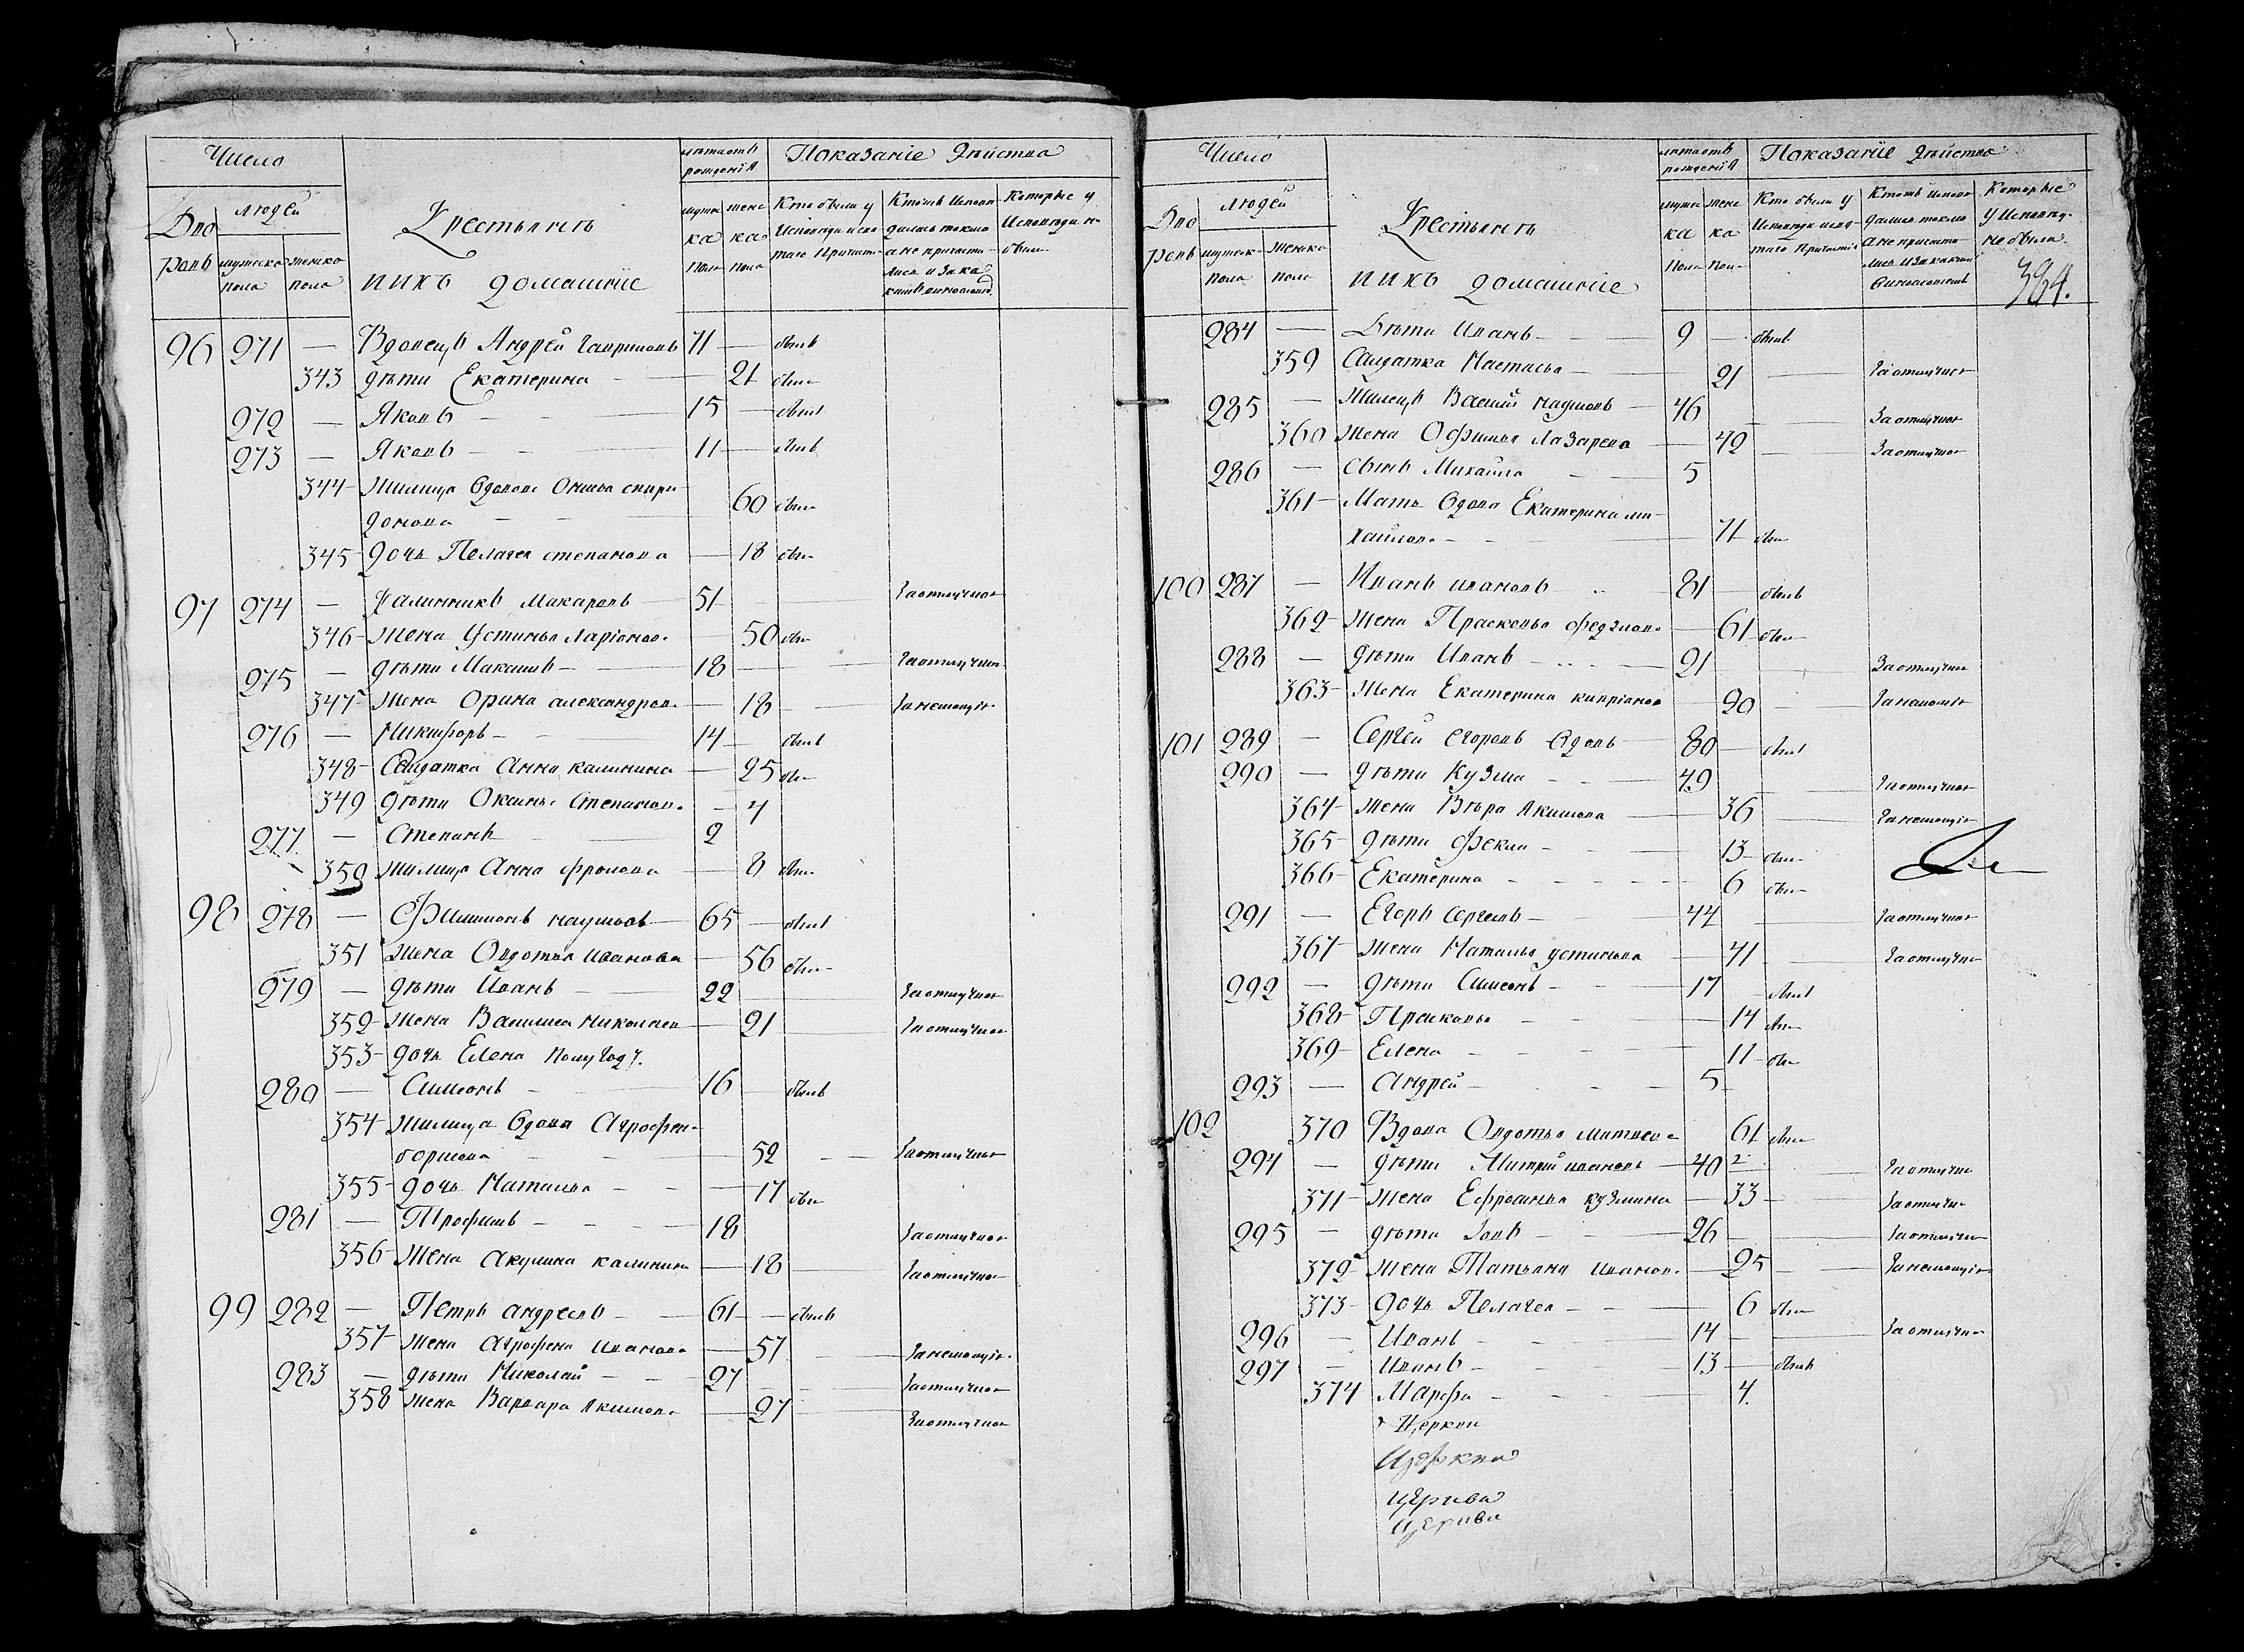 Число
лѣта отъ рожденiя
Показанiе Дѣйства
людей
Дво
ровъ
мужска пола
женско пола
Крестьянъ
ихъ домашнiе
мужска пола
женска пола
Кто были у Исповѣди и свя
таго Причаст
Ктожъ Исповѣ
дались токмо
а не причасти
лись и за ка
кимъ виносло
Которые у
Исповѣди не
были
96 271 — Вдовецъ Андрей Гавриловъ 71 — былъ
343 дѣти Екатерина — 21 была
272 — Яковъ — 15 — былъ
273 — Яковъ — 11 — былъ
344 Жилица вдова спири
донова — 60 была
345 дочь Пелагея степанова — 18 была
97 274 — Калинникъ Макаровъ 51 — За отлучкою
346 Жена Устинья Ларiонов. — 50 была
275 — дѣти Максимъ — 18 — За отлучкою
347 Жена Орина александров. — 18 —
276 — Никифоръ — 14 — былъ
348 Салдатка Анна калинина — 25 была
349 дѣти Оксинья Степанов. — 4
277 — Степанъ 2
350 жилица Анна фролова — 8 была
98 278 — Филимонъ наумовъ 65 — былъ
351 Жена Овдотья Иванова — 56 была
279 — дѣти Иванъ — 22 — За отлучкою
352 Жена Василиса Николаев — 21 — За отлучкою
353 дочь Елена полугоду.
280 — Симеонъ — 16 — былъ
354 Жилица вдова Агрофен
борисова — 52 — За отлучкою
355 дочь Наталья — 17 была
281 — Трофимъ — 18 За отлучкою
356 Жена Акулина калинина — 18 — За отлучкою
99 282 — Петръ андреевъ — 61 — былъ
357 Жена Агрофена Иванова — 57 —
283 — дѣти Николай — 27 — За отлучкою
358 Жена Варвара Акимов. — 27 — За отлучкою
Число
лѣта отъ рожденiя
Показанiе дѣйства
людей
Дво
ровъ
мужск пола
женско пола
Крестьянъ
ихъ домашнiе
мужска пола
женска пола
Кто были у
Исповѣди и свя
таго Причастiя
Ктожъ Испов
дались токмо
а не причасти
лись и за какимъ
виносло
Которые
у Исповѣд.
не были.
384.
284 — Дѣти Иванъ — 9 — былъ
359 Салдатка Настасья — 21 — За отлучкою
285 — Жилецъ Василий наумовъ 46 — За отлучкою
360 Жена Офимья Лазарева — 42 — За отлучкою
286 — Сынъ Михайла — 5
361 Мать вдова Екатерина ми
хайлова — 71 была
100 287 — Иванъ ивановъ — 81 — былъ
362 Жена Прасковья — 61 была
288 — дѣти Иванъ — 21 — За отлучкою
363 Жена Екатерина киприанов — 20 —
101 289 — Сергей егоровъ вдовъ 80 — былъ
290 — дѣти Кузма — 49 — За отлучкою
364 Жена Вѣра Акимова — 36 —
365 дѣти Фекла — 13 была
366 Екатерина — 6 была
291 — Егоръ Сергеевъ — 44 — За отлучкою
367 Жена Наталья устинова — 41 — За отлучкою
292 — дѣти Симеонъ — 17 — былъ
368 Прасковья — 14 была
369 Елена — 11 была
293 — Андрей — 5
102 370 Вдова Овдотья матвеева 61 была
294 — дѣти Митрий ивановъ 40 — За отлучкою
371 Жена Ефросинья кузмина — 33 — За отлучкою
295 — дѣти — 26 — За отлучкою
372 Жена Татьяна Иванов. — 25 —
373 дочь Пелагея — 6 была
296 — Иванъ — 14 — За отлучкою
297 — Иванъ — 13 — былъ
374 Марфа — 4.
Церкви